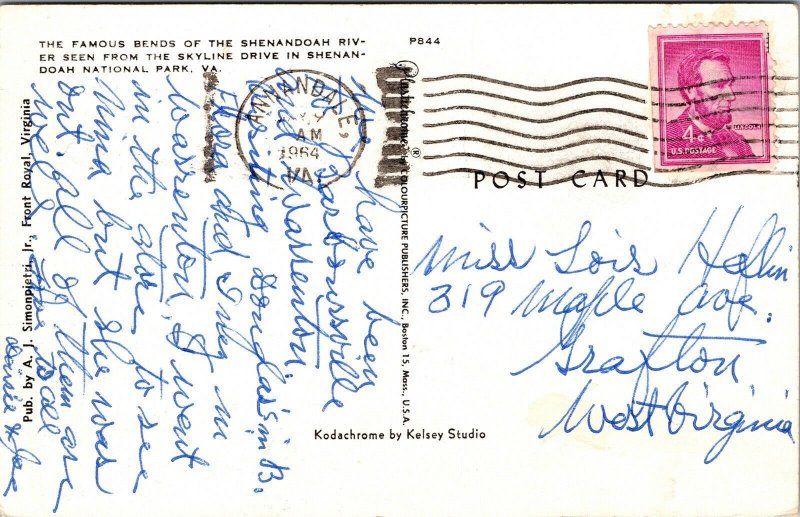 THE FAMOUS BENDS OF THE SHENANDOAH RIV-
ER SEEN FROM THE SKYLINE DRIVE IN SHENAN-
DOAH NATIONAL PARK, VA.
P844
ANNANDALE,
AM
1964
VA.
LINCOLN
4¢
U.S. POSTAGE
POST CARD
Pub. by A. J. Simonpietri, Jr., Front Royal, Virginia
Plastichrome® by COLOURPICTURE PUBLISHERS, INC., Boston 15, Mass., U.S.A.
Kodachrome by Kelsey Studio
We have been
to Barboursville
and Warrenton.
visiting Douglas in B.
Flora and Inez in
Warrenton, I went
in the store to see
Nina but she was
out. all of them are
well.
Miss Lois Heflin
319 Maple ave.
Grafton
West Virginia